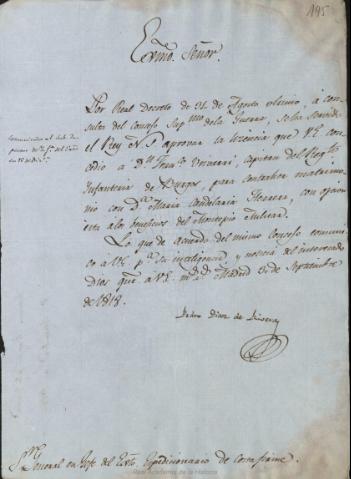 195
Exmo. Señor.
Por Real Decreto de 31 de Agosto ultimo, á con-
sulta del Consejo Sup.mo de la Guerra, se ha servido
el Rey N.S. aprovar la licencia que V.E. con-
cedio á D.n Fran.co capitan del Reg.to
Infanteria de Burgos, para contraher matrimo-
nio con D.ña Maria Candelaria Herrera, con opcion
esta á los beneficios del Montepio Militar.
Lo que de acuerdo del mismo Consejo comuni-
co á V.E. p.a su inteligencia y noticia del interesado
Dios gue. a V.E. m.s a.s Madrid de Septiembre
de 1818.
Pedro Diaz de
S.or General en Jefe del Exto. Expedicionario de Costa firme.
Real Academia de la Historia